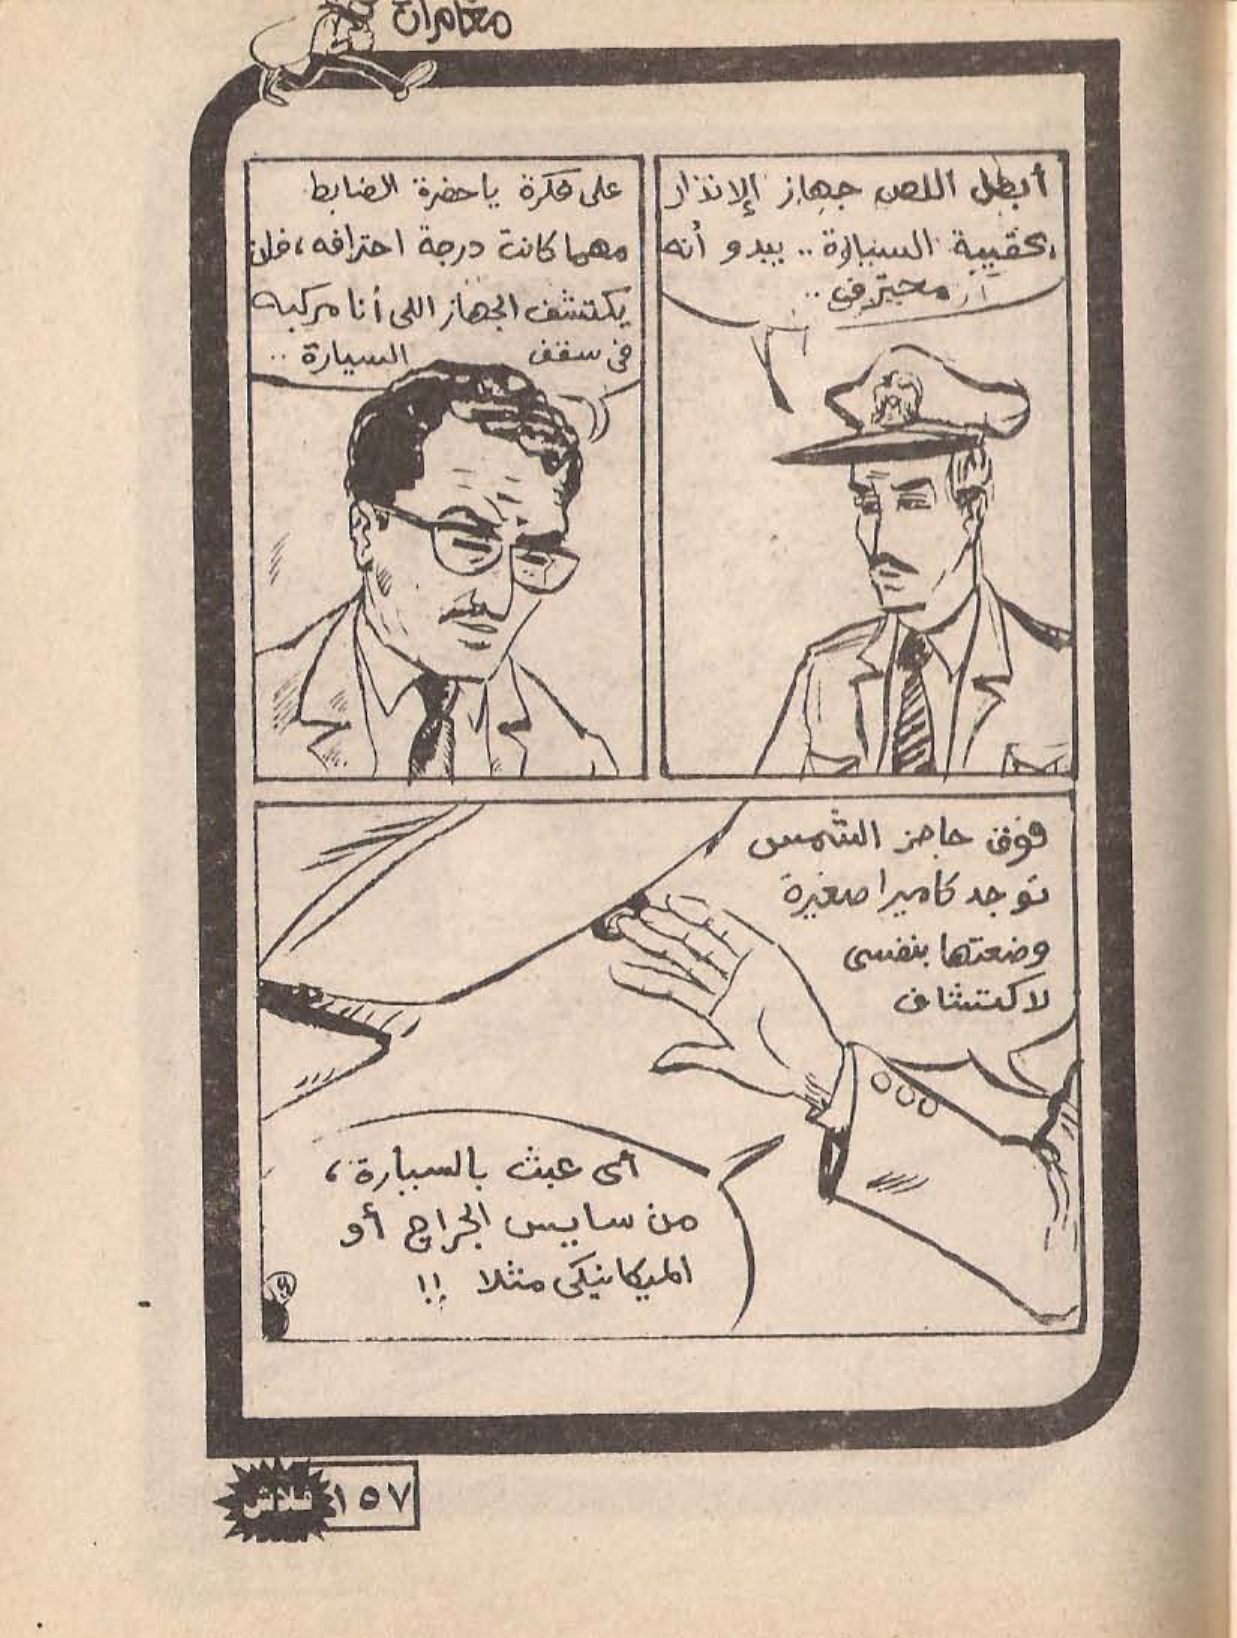 مغامرات
أبطل اللص جهاز الإنذار
بحقيبة السيارة .. يبدو أنه
محترف ..
على فكرة يا حضرة الضابط
مهما كانت درجة احترافه ، فلن
يكتشف الجهاز اللى أنا مركبه
فى سقف السيارة ..
فوق حاجز الشمس
توجد كاميرا صغيرة
وضعتها بنفسى
لاكتشاف
أى عبث بالسيارة ،
من سايس الجراج أو
الميكانيكى مثلا !!
فلاش ١٥٧